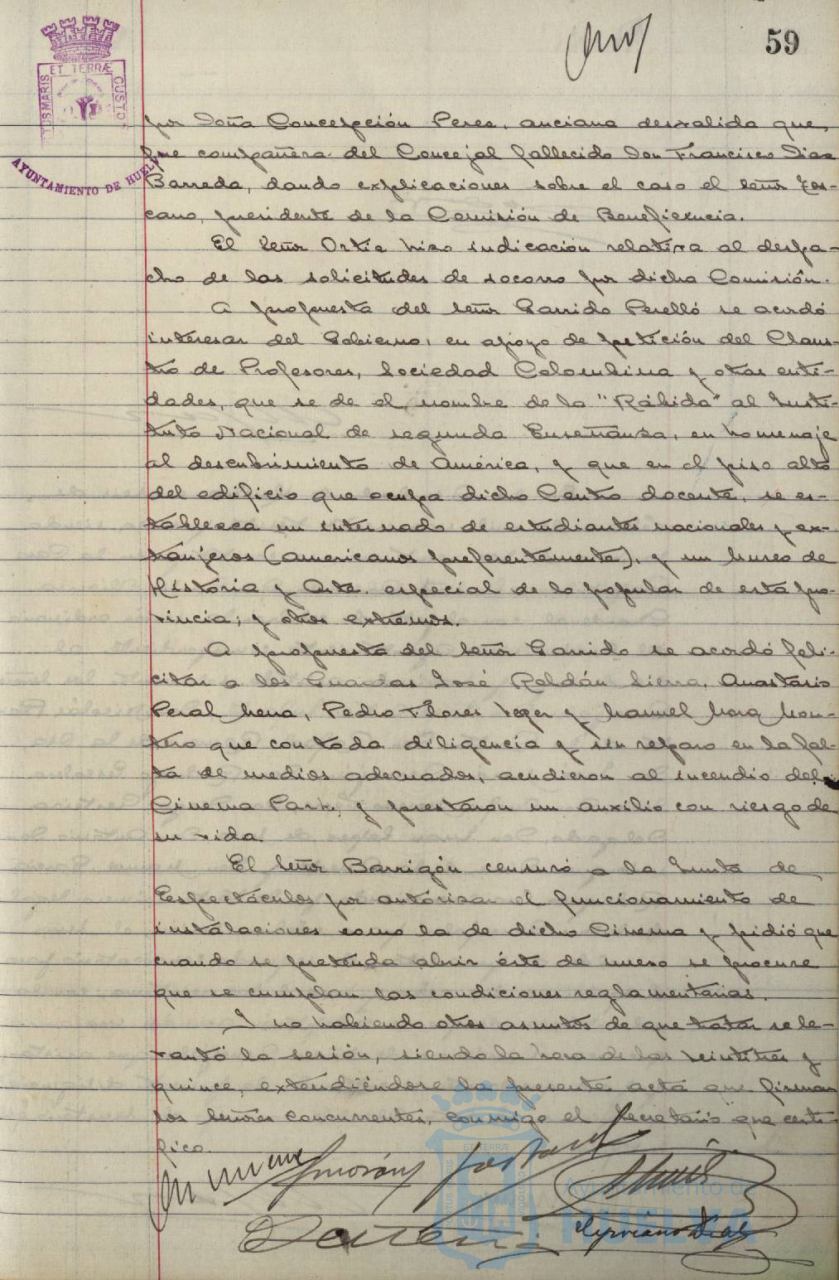 59
ET TERRÆ
CUSTO
AYUNTAMIENTO DE HUELVA
por Doña Concepción Perea, anciana desvalida que
fue compañera del Concejal fallecido Don Francisco Diaz
Barreda, dando explicaciones sobre el caso el señor Tos-
cano, presidente de la Comisión de Beneficencia.
El Señor Ortiz hizo indicación relativa al despa-
cho de las solicitudes de socorro por dicha Comisión.
A propuesta del señor Garrido Perelló se acordó
interesar del Gobierno, en apoyo de petición del Claus-
tro de Profesores, Sociedad Colombina y otras enti-
dades, que se de el nombre de la "Rábida" al Insti-
tuto Nacional de segunda Enseñanza, en homenaje
al descubrimiento de América, y que en el piso alto
del edificio que ocupa dicho Centro docente, se es-
tablezca un internado de estudiantes nacionales y ex-
tranjeros (americanos preferentemente), y un Museo de
Historia y Arte, especial de lo popular de esta pro-
vincia; y otros extremos.
A propuesta del señor Garrido se acordó feli-
citar a los Guardas José Roldán Sierra, Anastasio
Peral Mena, Pedro Flores y Manuel Mora Mon-
tero que con toda diligencia y sin reparo en la fal-
ta de medios adecuados, acudieron al incendio del
Cinema Park, y prestaron un auxilio con riesgo de
su vida.
El Señor Barrigón censuró a la Junta de
Espectáculos por autorizar el funcionamiento de
instalaciones como la de dicho Cinema y pidió que
cuando se pretenda abrir éste de nuevo se procure
que se cumplan las condiciones reglamentarias.
Y no habiendo otros asuntos de que tratar se le-
vantó la sesión, siendo la hora de las veintitres y
quince, extendiéndose la presente acta que firman
los señores concurrentes, conmigo el Secretario que certi-
fico.
Cipriano Diaz
Ayuntamiento de
HUELVA